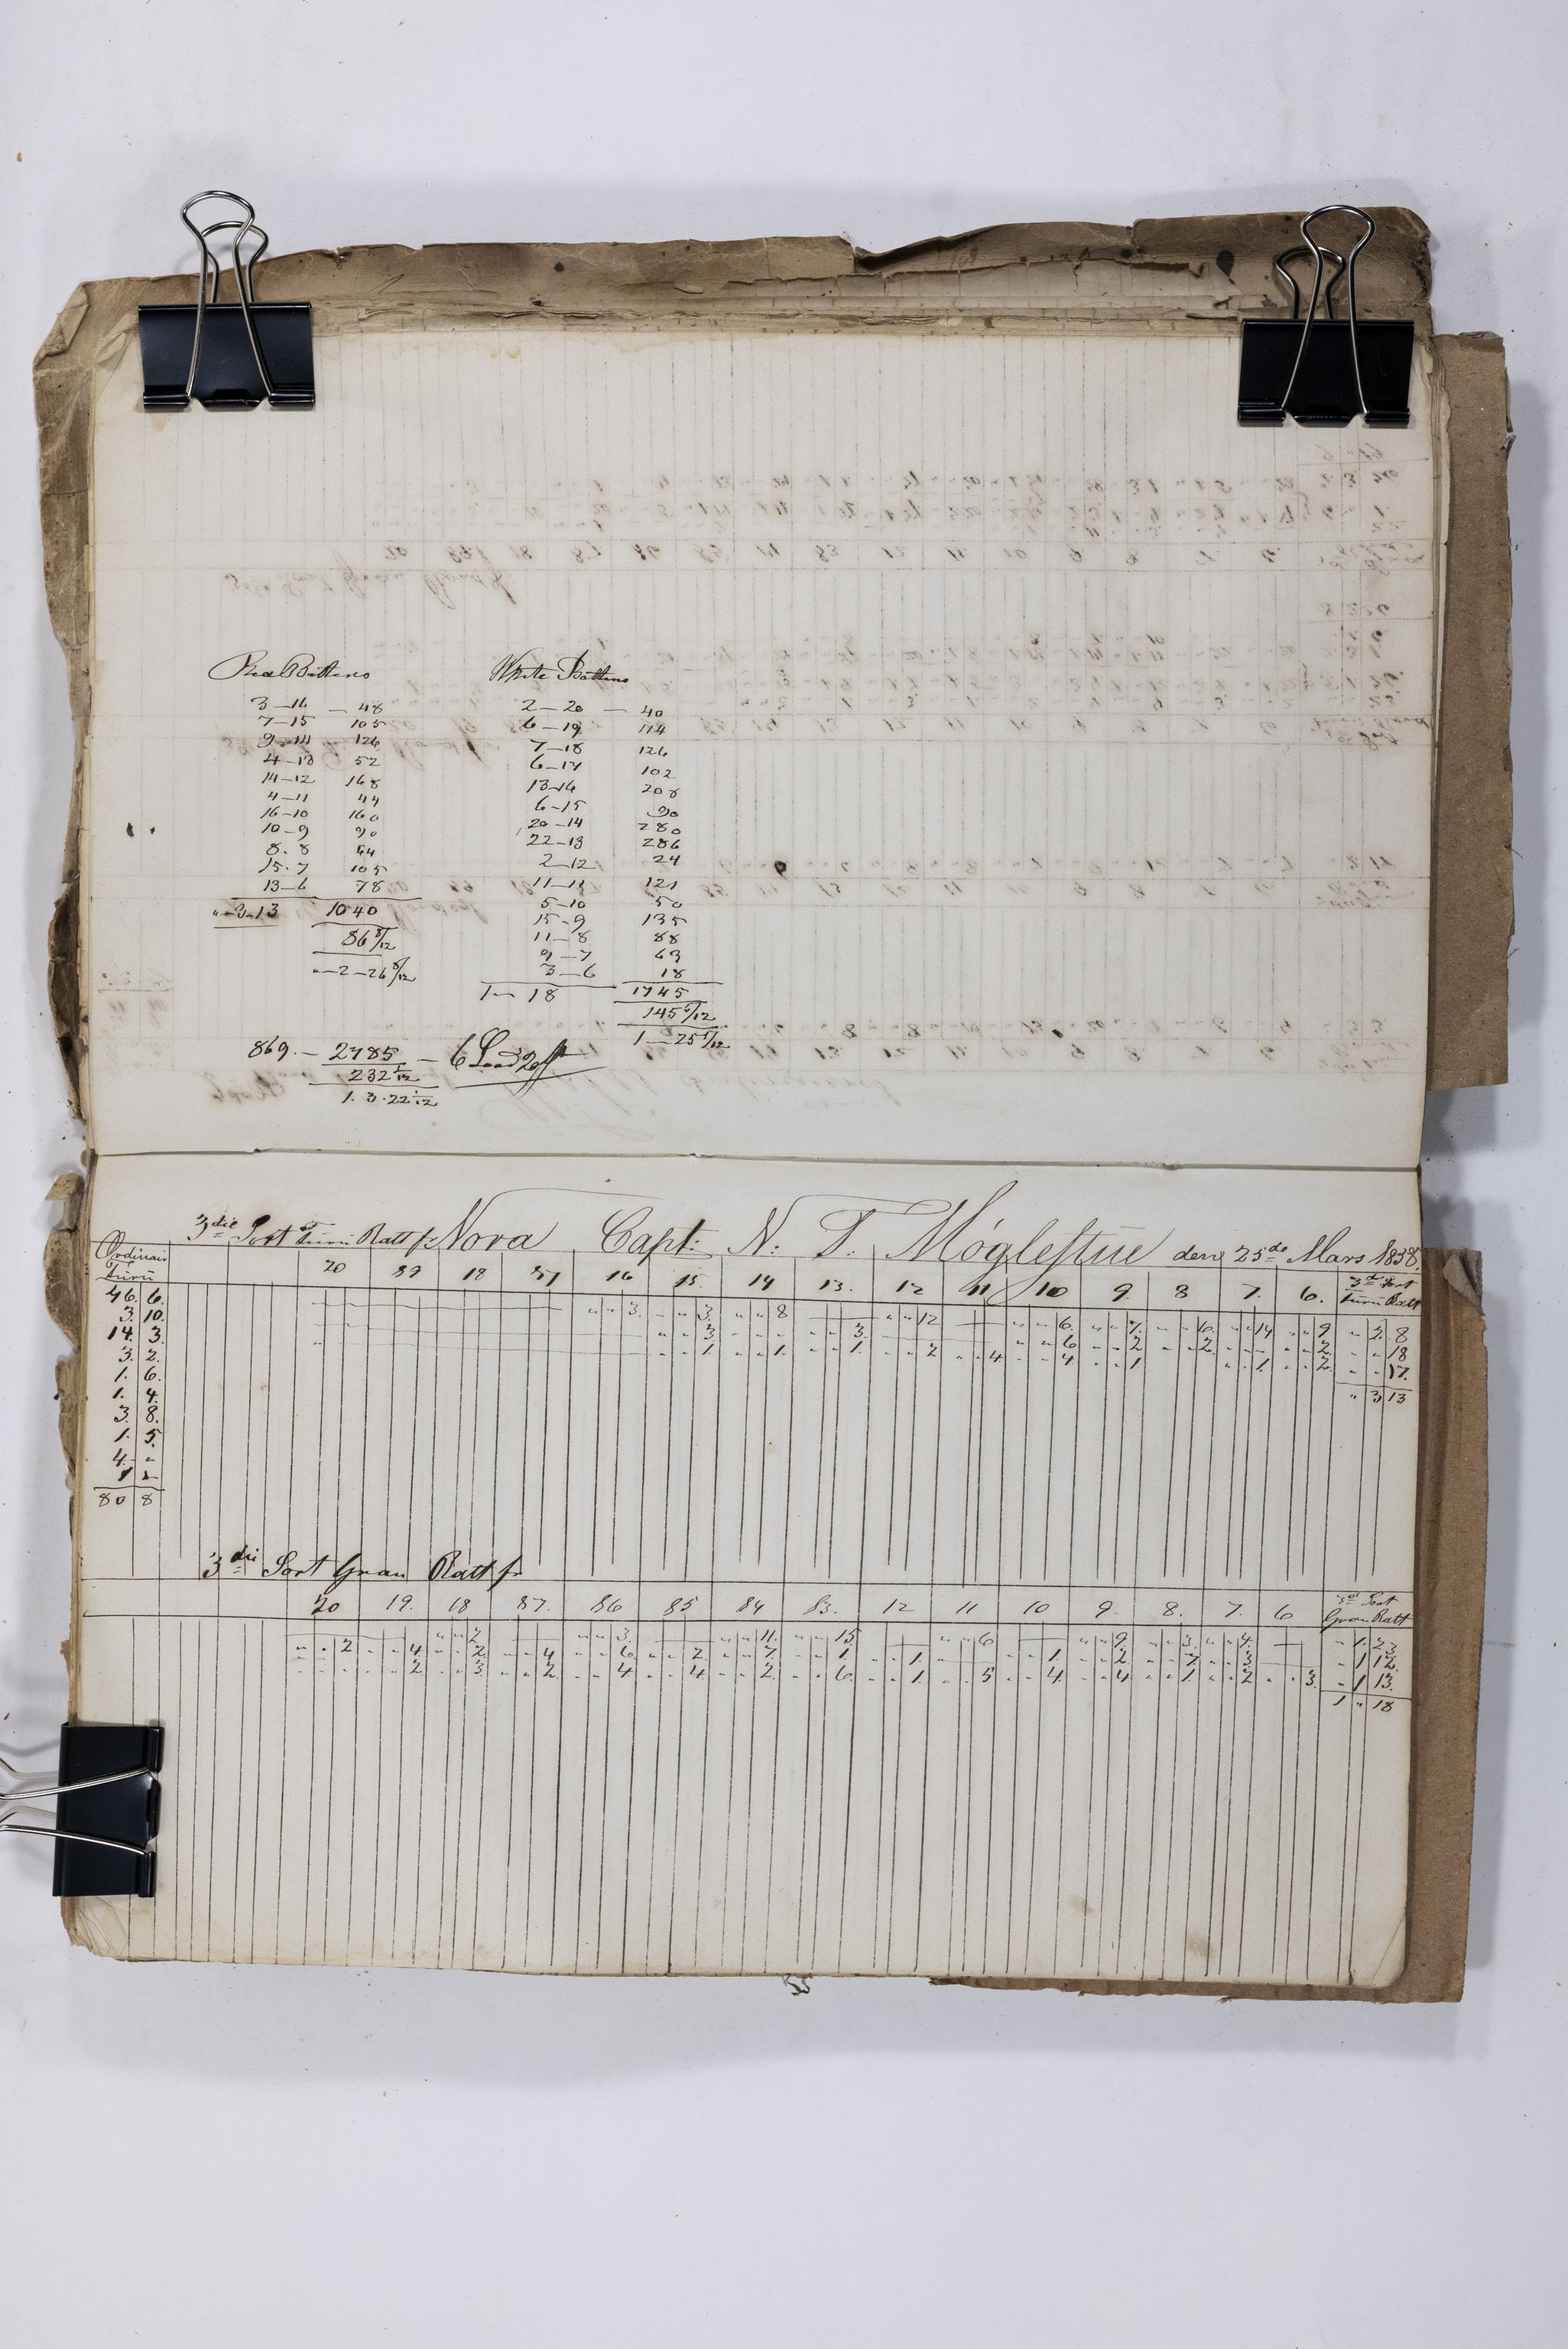 Red Battens
3 – 16 – 48
7 – 15 105
9 – 14 126
4 – 13 52
14 – 12 168
4 – 11 44
16 – 10 160
10 – 9 90
8 . 8 64
15 . 7 105
13 – 6 78
" – 3 – 13 1040
86 8/12
" – 2 – 26 8/12
White Battens
2 – 20 – 40
6 – 19 114
7 – 18 126
6 – 17 102
13 – 16 208
6 – 15 90
20 – 14 280
22 – 13 286
2 – 12 24
11 – 11 121
5 – 10 50
15 – 9 135
11 – 8 88
9 – 7 63
3 – 6 18
1 – " 18 1745
145 5/12
1 – 25 5/12
869 . – 2785 – 6 Load 20
232 1/12
1 . 3 . 22 1/12
3die Sort Furu Batt fr Nova Capt: N. T. Móglestue den 25de Mars 1838.
Ordinair Furu
20 19 18 17 16 15. 14 13. 12 11 10 9. 8 7. 6. 3die Sort Furu Batt
46. 6.
3. 10.
14. 3.
3. 2.
1. 6.
1. 4.
3. 8.
1. 5.
4. "
1 2
80 8
" " 3. " " 3. " " 8 " " 12 " " 6. " " 7. " " 6. " " 14 " " 9 " 2. 8
" " 3 " " " " " 3. " " 6 " " 2 " " 2. " " 2. " " 18
" " 1 " " 1. " " 1. " " 2 " " 4 " " 4 " " 1. " " 1. " " 2. " " 17.
" 3 13
3die Sort Gran Batt fr
20 19. 18 17. 16 15 14 13. 12 11 10 9. 8. 7. 6 3die Sort Gran Batt
" " 2 " " 3. " " 11. " " 15. " " 6 " " 9. " " 3. " " 4. " 1. 23
" " 2 " " 4. " " 2. " " 4 " " 6. " " 2. " " 7. " " 1. " " 1. " " 1. " " 2 " " 7. " " 3 " 1 12.
" " " " " 2 " " 3. " " 2. " " 4 " " 4. " " 2. " " 6. " " 1. " " 5 " " 4. " " 4 " " 1. " " 2 " " 3. " 1 13.
1 " 18